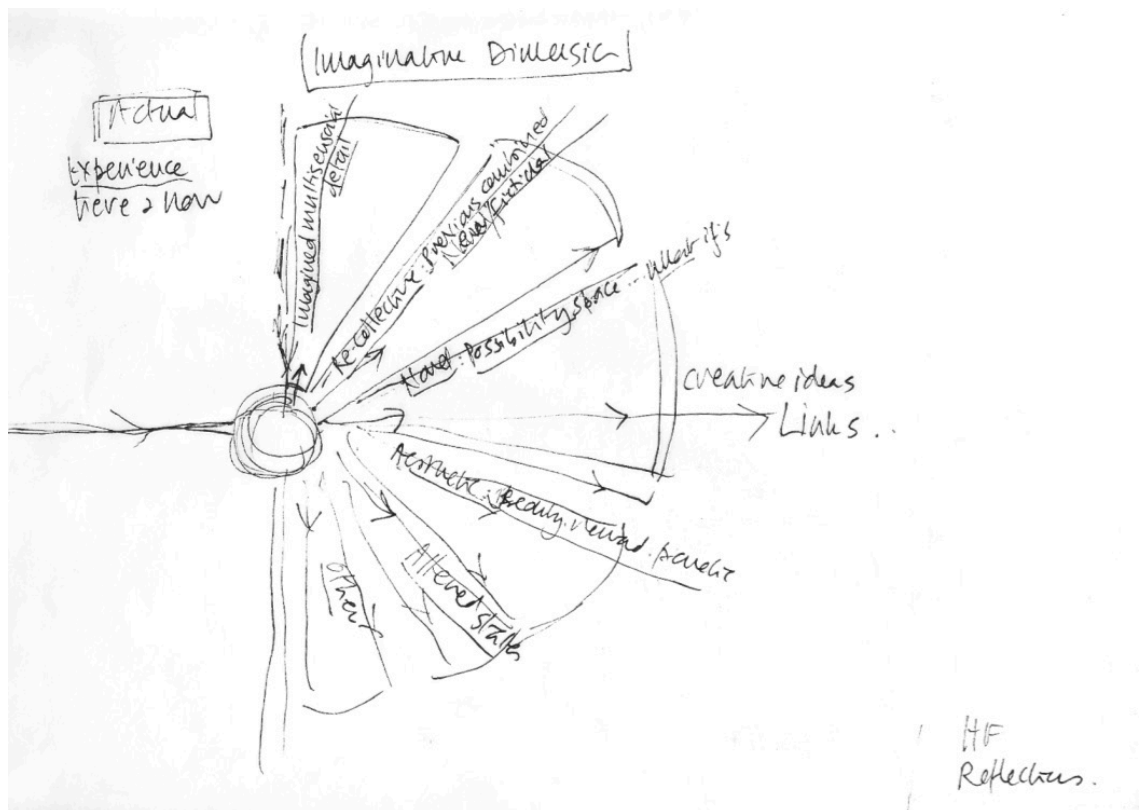 Imaginative Dimension
Actual
Experience
here & now
Imagined multisensorial
detail
Re-collective: previous combined
/ fictional
Novel: Possibility space... what ifs
creative ideas
Links..
Aesthetic: Beauty.
Altered states
other
HF
Reflections.